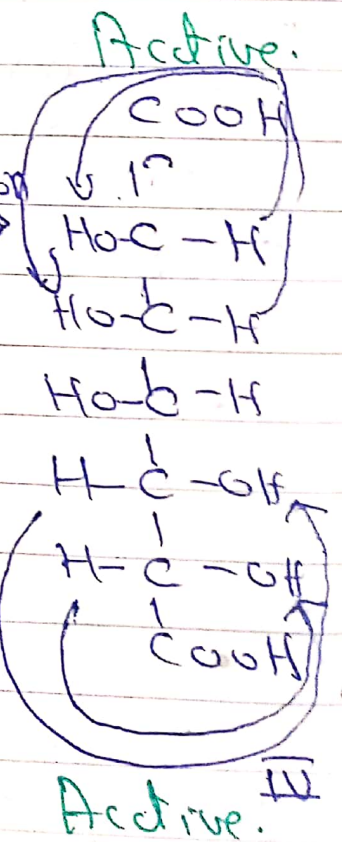 Active.
COOH
HO-C-H
HO-C-H
HO-C-H
H-C-OH
H-C-OH
COOH
IV
Active.